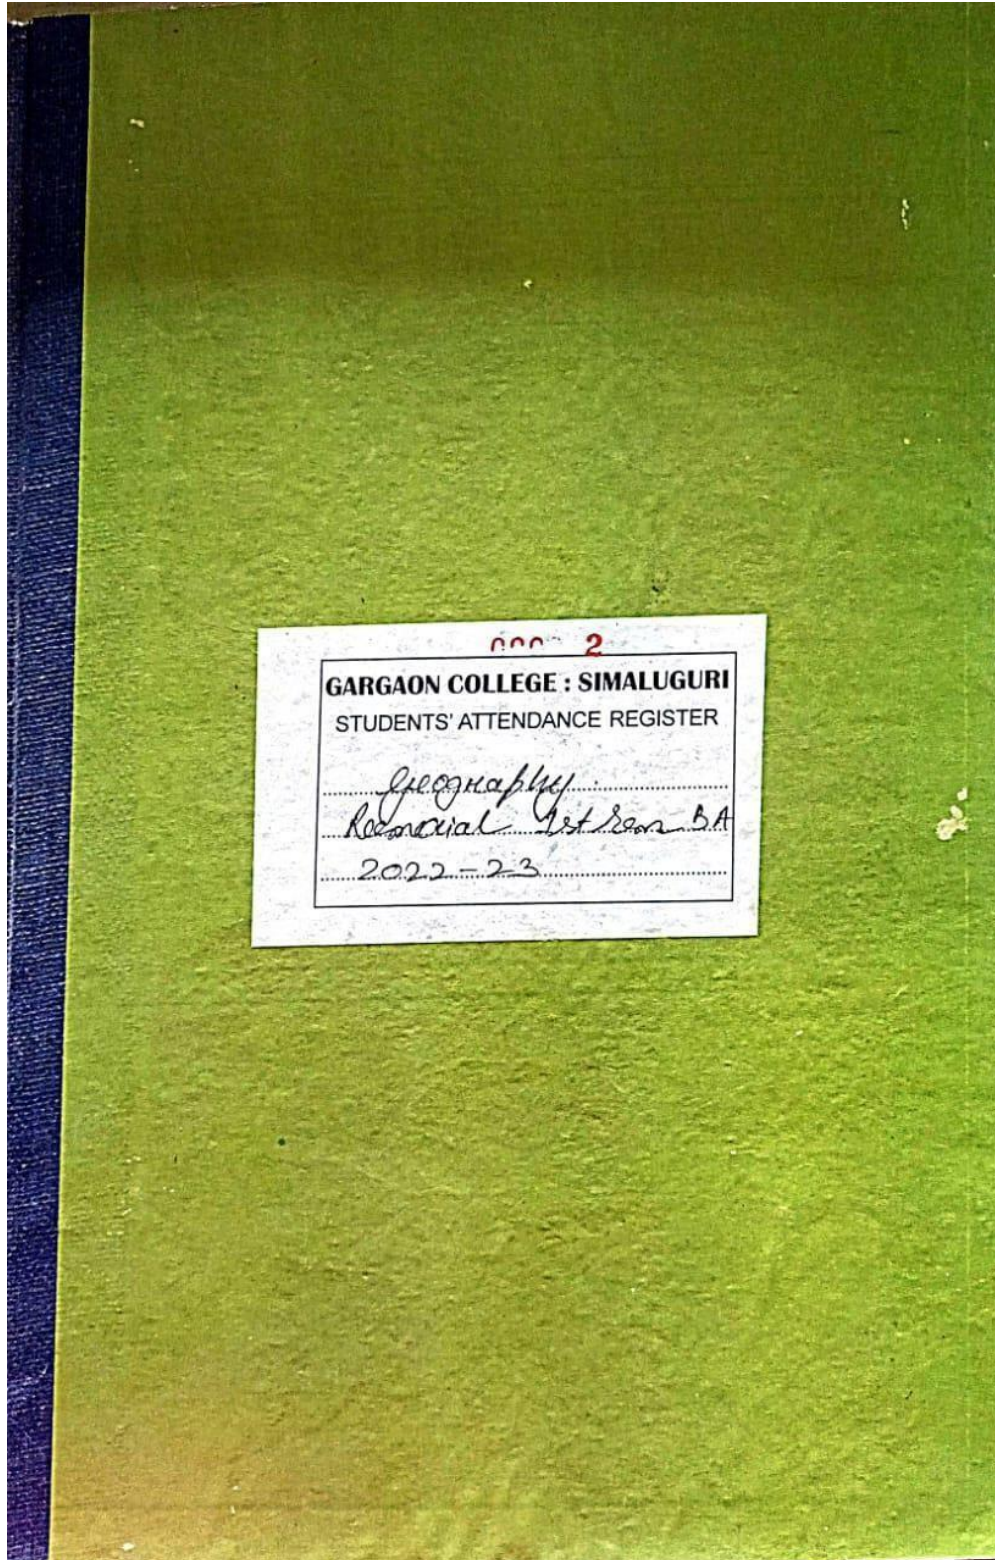 2
GARGAON COLLEGE : SIMALUGURI
STUDENTS' ATTENDANCE REGISTER
Geography
Remedial 1st Sem BA
2022-23